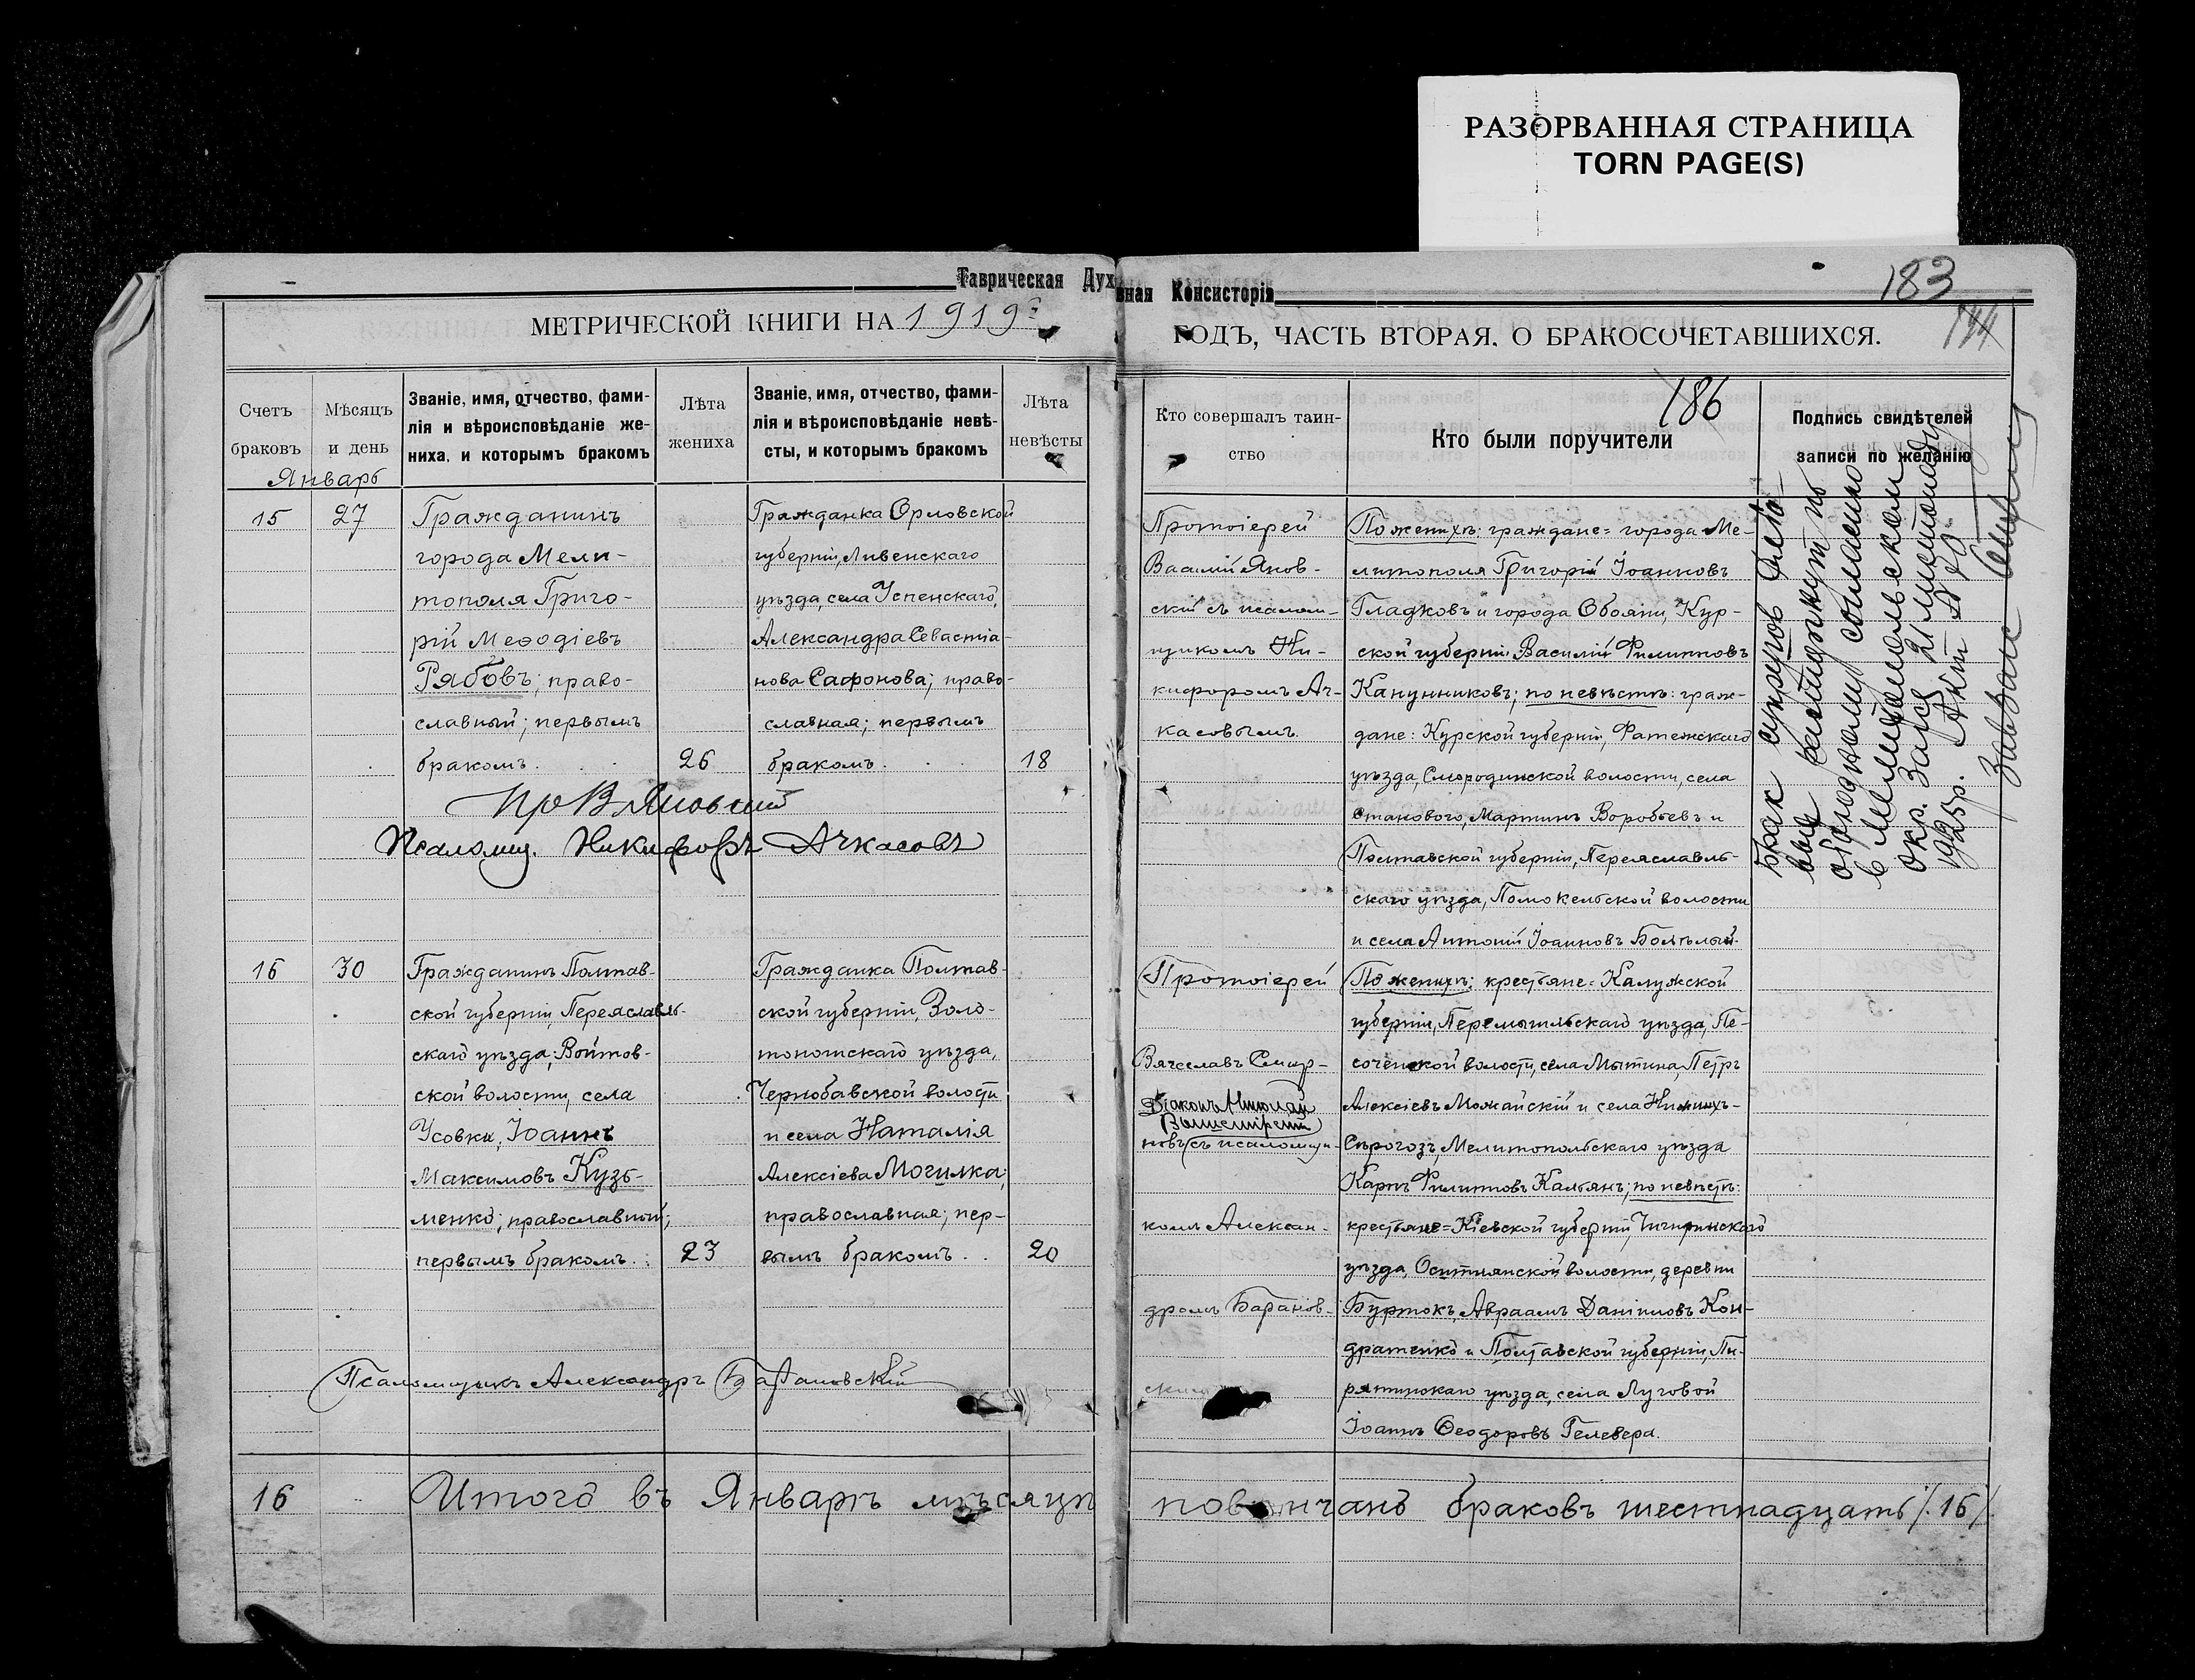 РАЗОРВАННАЯ СТРАНИЦА
TORN PAGE(S)
Таврическая Духовная Консисторія
183
МЕТРИЧЕСКОЙ КНИГИ НА 1919 г.
ГОДЪ, ЧАСТЬ ВТОРАЯ. О БРАКОСОЧЕТАВШИХСЯ.
186
Счетъ браковъ
Мѣсяцъ и день
Званіе, имя, отчество, фами-
лія и вѣроисповѣданіе же-
ниха, и которымъ бракомъ
Лѣта жениха
Званіе, имя, отчество, фами-
лія и вѣроисповѣданіе невѣ-
сты, и которымъ бракомъ
Лѣта невѣсты
Кто совершалъ таин-
ство
Кто были поручители
Подпись свидѣтелей
записи по желанію
Январь
15
27
Гражданинъ
города Мели-
тополя Григо-
рій Меѳодіевъ
Рябовъ; право-
славный; первымъ
бракомъ.
26
Гражданка Орловской
губерніи, Ливенскаго
уѣзда, села Успенскаго,
Александра Севастіа-
нова Сафонова; право-
славная; первымъ
бракомъ.
18
Протоіерей
Василій Янов-
скій съ псалом-
щикомъ Ни-
кифоромъ Ач-
касовымъ.
По женихѣ: граждане= города Ме-
литополя Григорій Іоанновъ
Гладковъ и города Обояни, Кур-
ской губерніи Василій Филипповъ
Канунниковъ; по невѣстѣ: граж-
дане: Курской губерніи, Фатежскаго
уѣзда, Смородинской волости, села
Становаго, Мартинъ Воробьевъ и
Полтавской губерніи, Переяславль-
скаго уѣзда, волости
и села Антоній Іоанновъ
Брак супругов
расторгнут по
обоюдному согласию
в Мелитопольском
окр. Загсе 21
1925р. Акт №
Завзагс
Пр В Яновскій
Псаломщ. Никифоръ Ачкасовъ
16
30
Гражданинъ Полтав-
ской губерніи, Переяславль-
скаго уѣзда, Войтов-
ской волости, села
Усовки, Іоаннъ
Максимовъ Кузь-
менко; православный;
первымъ бракомъ.
23
Гражданка Полтав-
ской губерніи, Золо-
тоношскаго уѣзда,
Чернобаевской волости
и села Наталія
Алексіева Могилка;
православная; пер-
вымъ бракомъ.
20
Протоіерей
Вячеславъ Смир-
Діаконъ Николай
новъ съ псаломщи-
комъ Алексан-
дромъ Баранов-
скимъ
По женихѣ: крестьяне= Калужской
губерніи, Перемышльскаго уѣзда, Пе-
соченской волости, села Мытина, Петръ
Алексіевъ Можайскій и села Нижнихъ-
Сѣрогозъ, Мелитопольскаго уѣзда
Карпъ Филипповъ Кальянъ; по невѣстѣ:
крестьяне= Кіевской губерніи, Чигиринскаго
уѣзда, Оситнянской волости, деревни
Буртокъ, Авраамъ Даніиловъ Кон-
дратенко и Полтавской губерніи, Пи-
рятинскаго уѣзда, села Луговой
Іоаннъ Ѳеодоровъ Гелевера.
Псаломщикъ Александръ Барановскій
16
Итого въ Январѣ мѣсяцѣ повѣнчано браковъ шестнадцать /.16/.